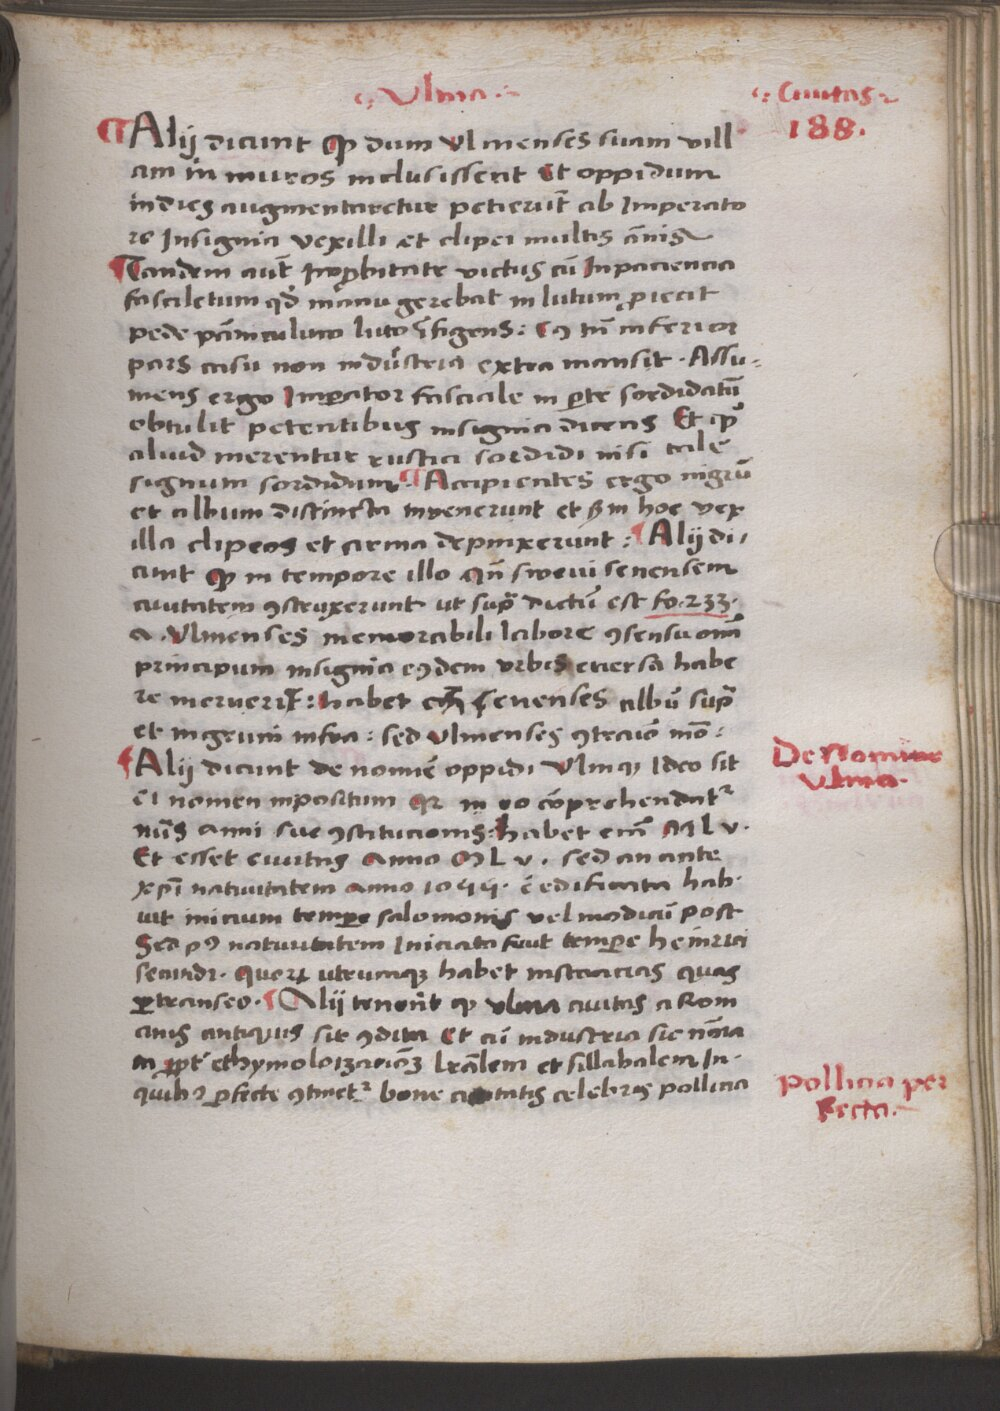 Vlma
Ciuitas
188.
Alij dicunt qp dum vlmenses suam vill
am in muros inclusissent Et oppidum
in dies augmentaretur petierūt ab Imperato
re Insignia vexilli et clipei multis ānis
Tandem aūt Improbitate victus cū Inpaciencia
fasciletum qd manu gerebat in lutum proiecit
pede luto īfigens: tn̄ inferior
pars casu non industria extra mansit. Assu-
mens ergo Imperator fasciale in parte sordidatū
obtulit petentibus insignia dicens Et
aliud merentur rustici sordidi nisi tale
signum sordidum. Accipientes ergo nigrū
et album distincta invenerunt et sm hoc vex
illa clipeos et arma depinxerunt: Alij di/
cunt qp in tempore illo qn̄ swevi senensem
ciuitatem 9struxerunt ut supra dictū est fo. 233.
a. Vlmenses memorabili labore 9sensu om̄
principum insignia eiusdem vrbis euersa habe
re meruerūt: habet em̄ senenses albū supra
et nigrum infra: sed vlmenses 9trario mō:
Alij dicunt de nomīe oppidi Vlmq; Ideo sit
ei nomen inpositum qr in eo cōprehendatr
nūs anni sue 9stitucionis: habet enī M L v.
Et esset ciuitas Anno M L v. sed an ante
xpī natiuitatem anno 1055. ē edificata hab-
uit inicium tempore salomonis vel modicū post
Sed p9 natiuitatem Iniciata fuit tempore heinrici
secundi. quorum utrumq; habet instancias quas
pertranseo. Alij tenent qp vlma ciuitas a Rom
anis antiquis sit 9dita Et cū industria sic nōīa
ta propt ethymoloizacionē lr̄alem et sillabalem In-
quib9 perfecte 9tinetr bone ciuitatis celebris pollicia
De Nomine
Vlma.
pollicia per
fecta.